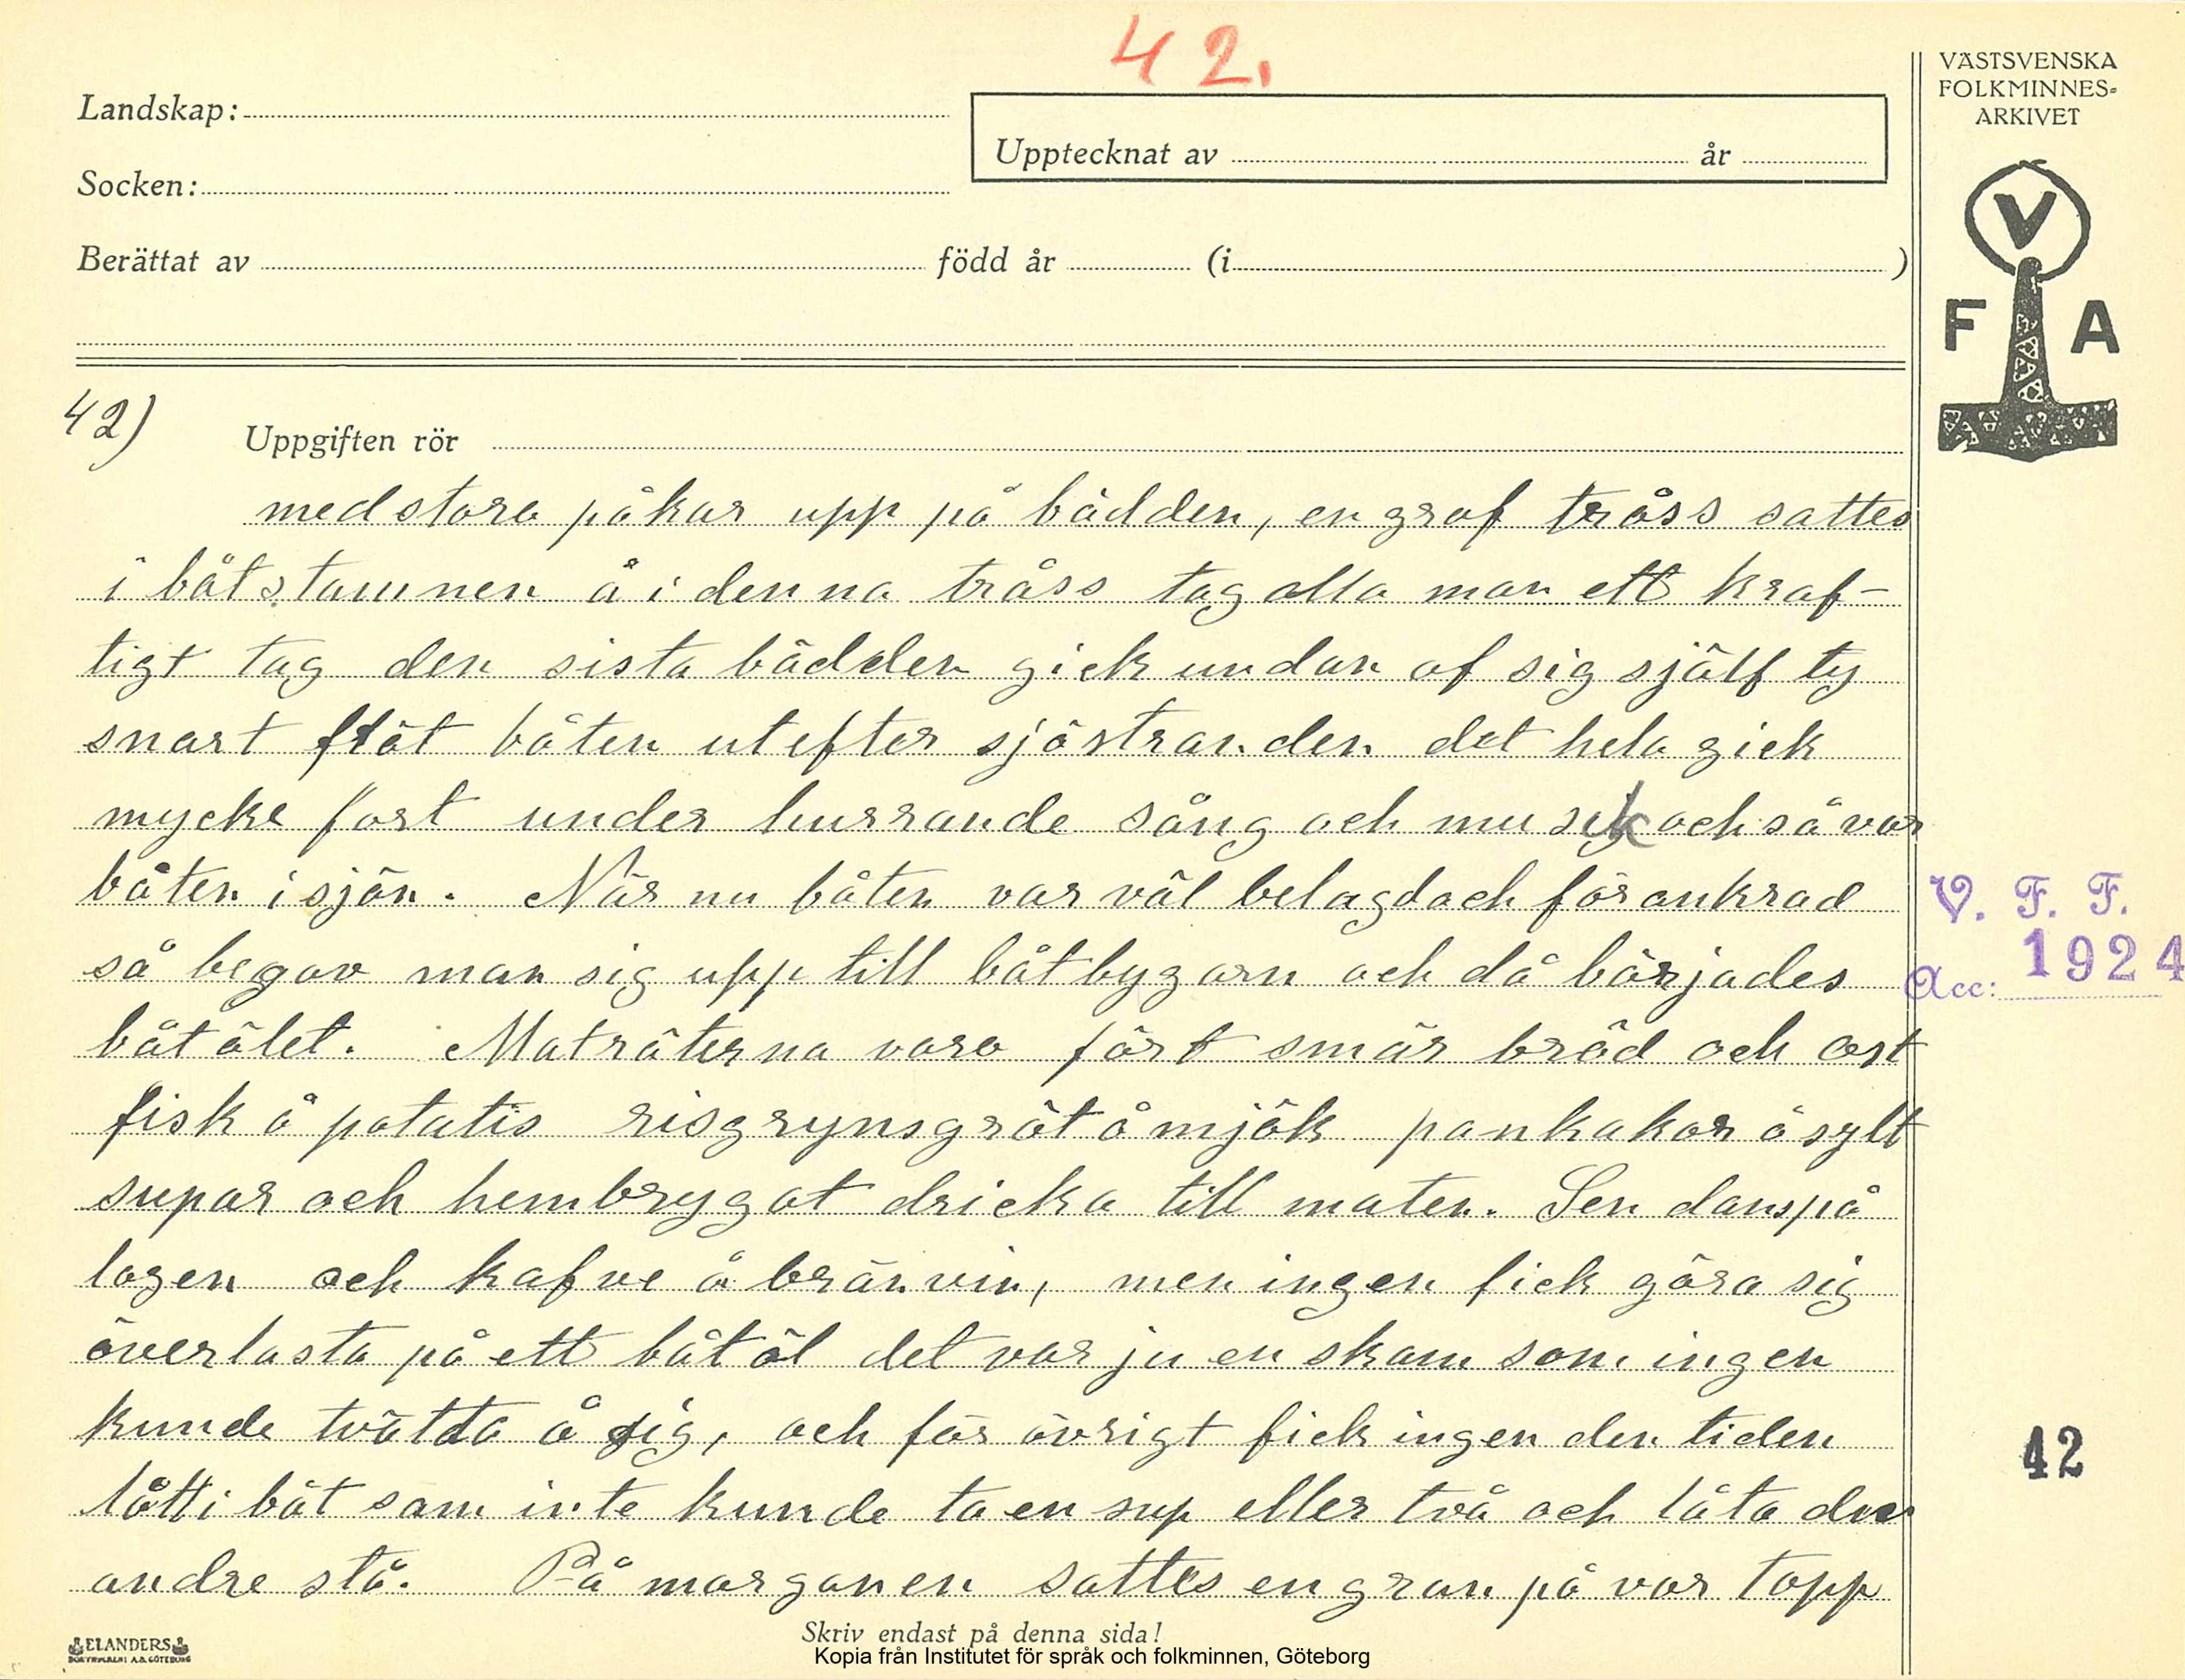 42.
VÄSTSVENSKA
FOLKMINNES-
ARKIVET
Landskap:
Upptecknat av år
Socken:
Berättat av född år (i )
V
F A
42)
Uppgiften rör
med stora påkar upp på bädden, en graf tråss sattes
i båtstammen å i denna tråss tog alla man ett kraf-
tigt tag den sista bädden gick undan af sig själf ty
snart flöt båten utefter sjöstranden det hela gick
mycke fort under hurrande sång och musik och så var
båten i sjön. När nu båten var väl belagd och förankrad
så begav man sig upp till båtbygarn och då börjades
båtölet. Maträterna vore först smör bröd och ost
fisk å potatis risgrynsgröt å mjök pankakor å sylt
supar och hembrygat dricka till maten. Sen dans på
logen och kafve å bränvin, men ingen fick göra sig
överlasta på ett båtöl det var ju en skam som ingen
kunde tvätta å sig, och för övrigt fick ingen den tiden
lått i båt som inte kunde ta en sup eller två och låta den
andre stå. På morgonen sattes en gran på var topp
V. F. F.
Acc: 1924
42
ELANDERS
BOKTRYCKERI A.B. GÖTEBORG
Skriv endast på denna sida!
Kopia från Institutet för språk och folkminnen, Göteborg